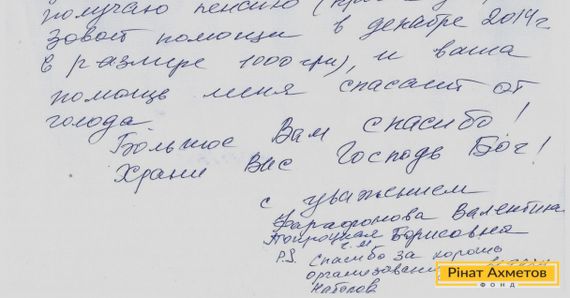 получаю пенсию
зовой помощи в декабре 2014г
в размере 1000 грн), и ваша
помощь меня спасает от
голода
Большое Вам спасибо!
Храни Вас Господь Бог!
с уважением
Фарафонова Валентина
Борисовна
P.S. Спасибо за хорошо
Рінат Ахметов
ФОНД